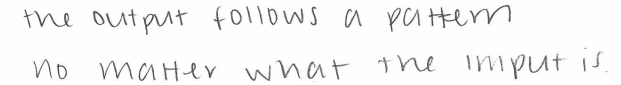 the output follows a pattern
no matter what the imput is.